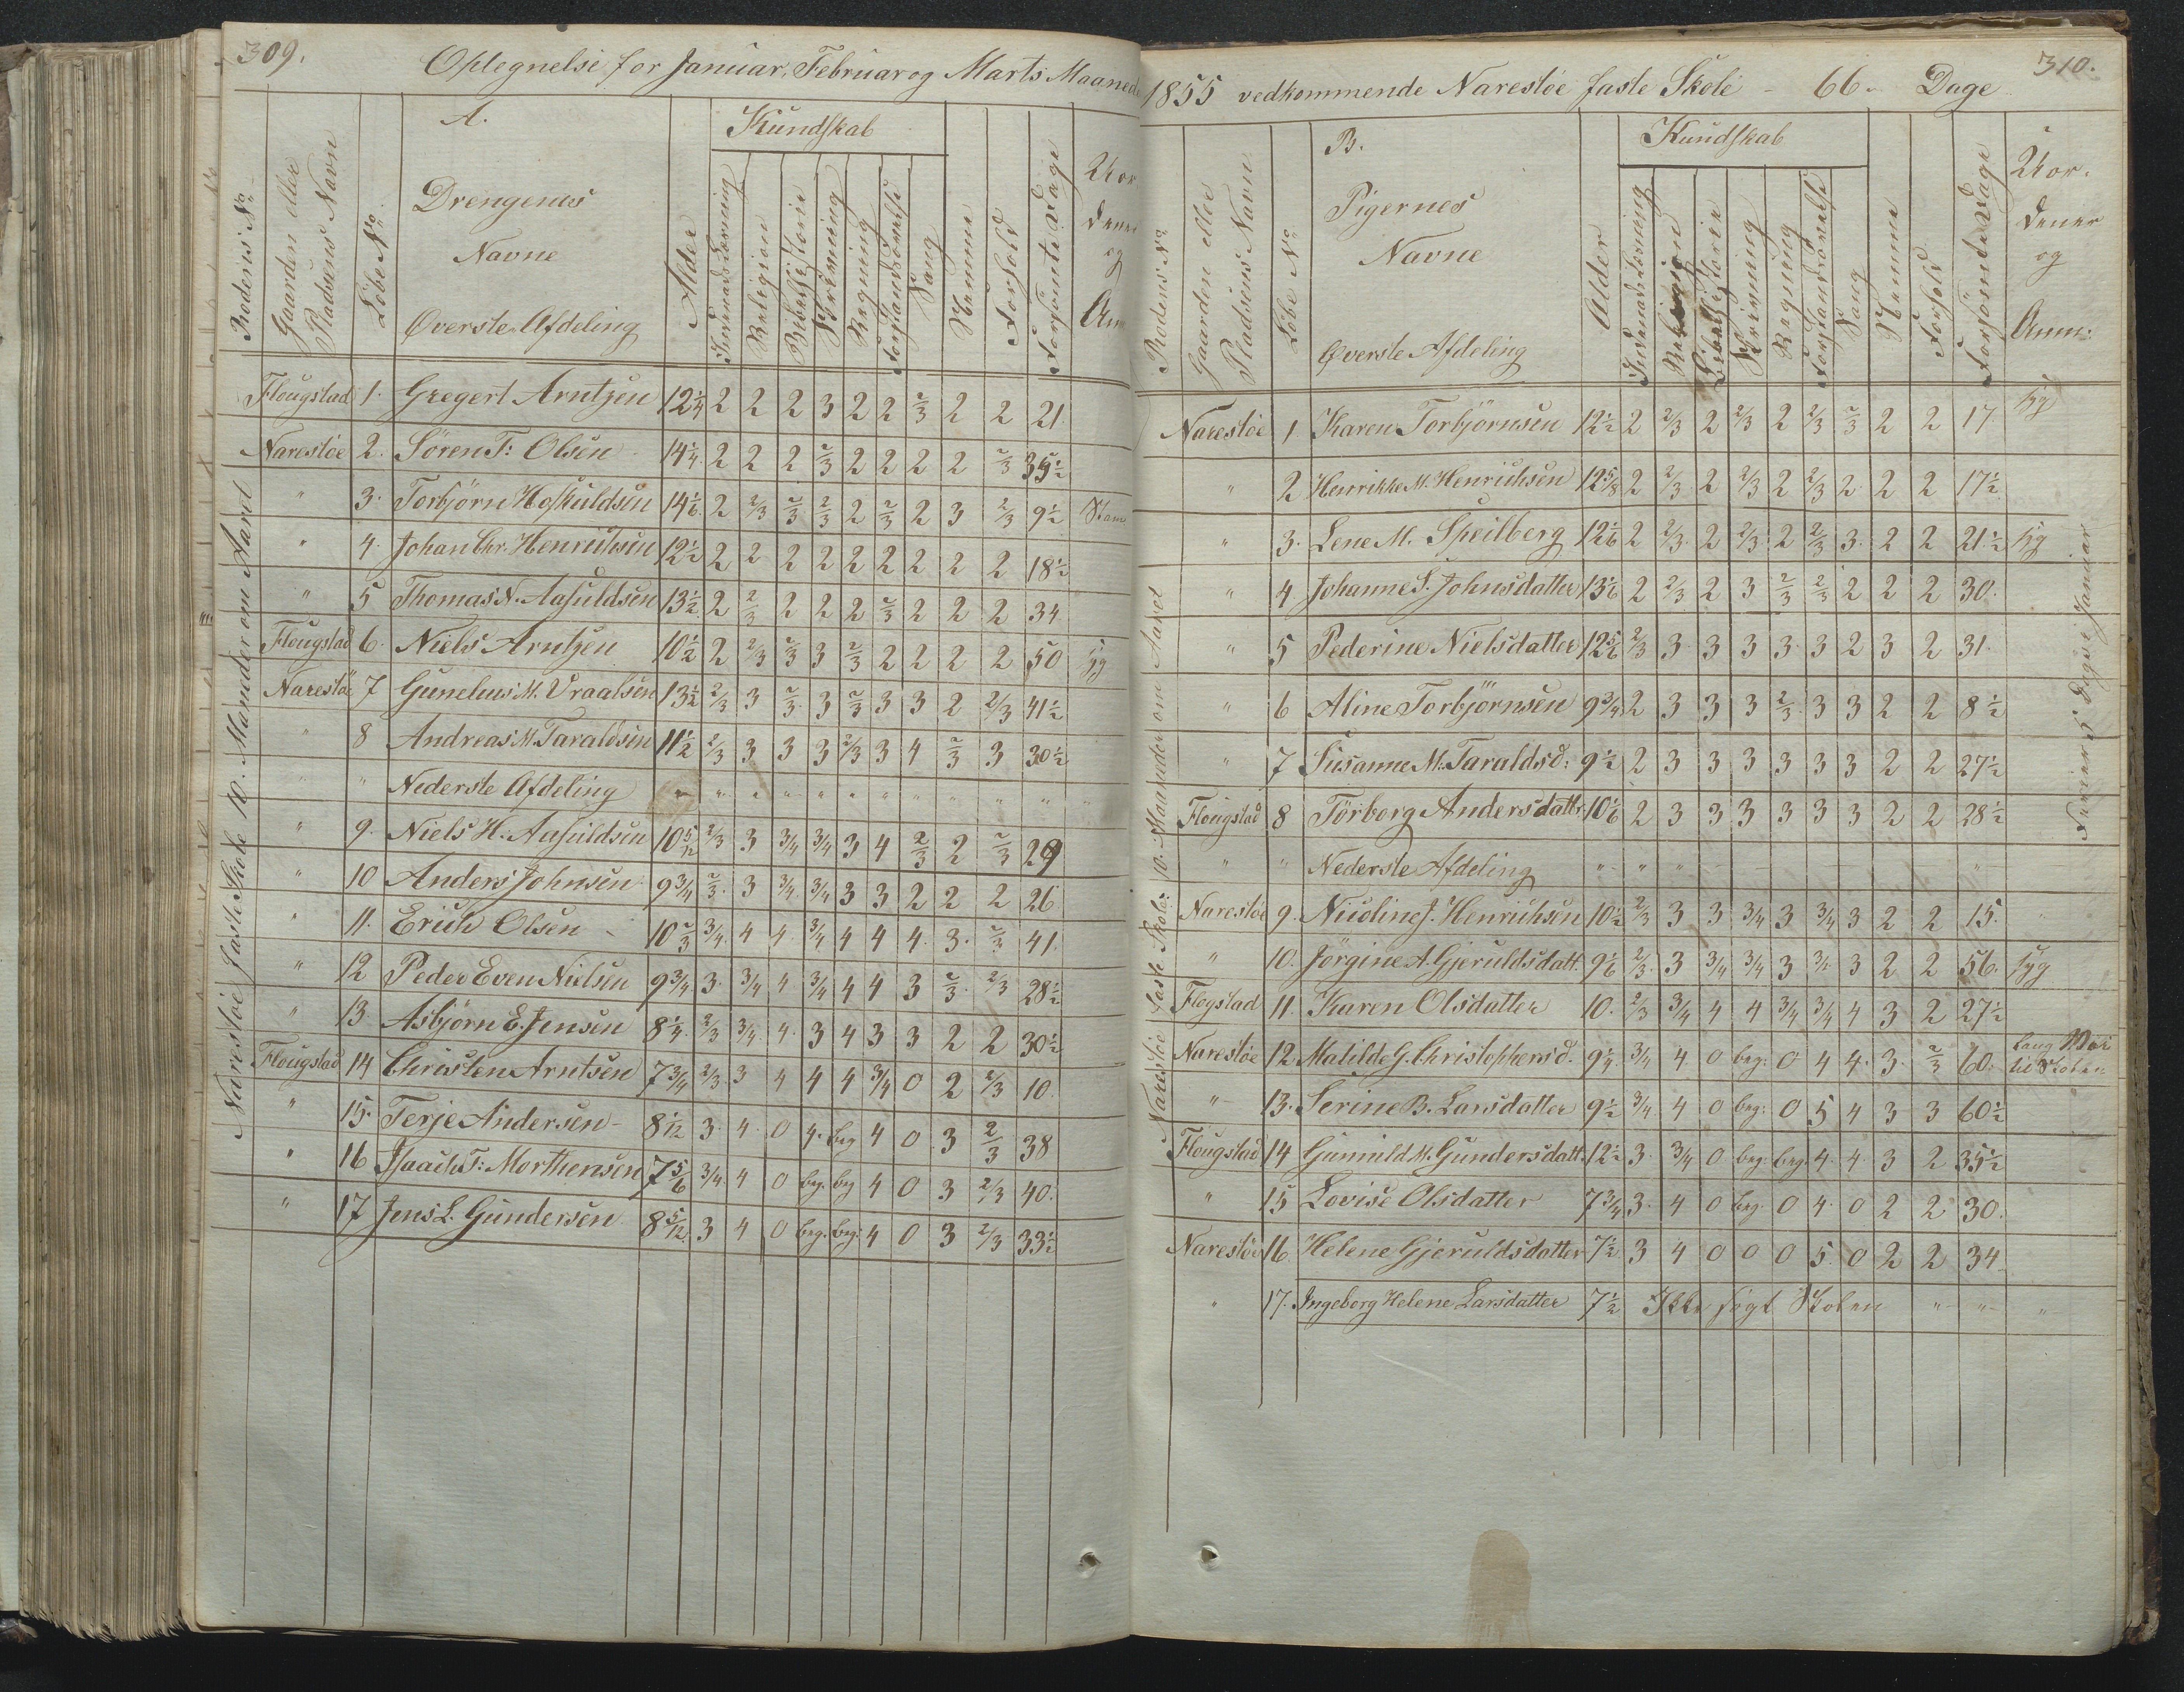 309.
Optegnelse for Januar, Februar og Marts Maaned
A.
Kundskab
Rodens No
Gaarden eller Pladsens Navn
Löbe No
Drengenes
Navne
Øverste Afdeling
Alder
Indenadslæsning
Religion
Bibelhistorie
Skrivning
Regning
Forstandsövelse
Sang
Nemme
Forhold
Forsömte Dage
og
Narestöe faste Skole 10. Maaneder om Aaret
Flougstad 1. Gregert Arntzen 12 1/4 2 2 2 3 2 2 2/3 2 2 21.
Narestöe 2. Sören F: Olsen 14 1/4 2 2 2 2/3 2 2 2 2 2/3 35 1/2
" 3. Torbjörn Hoskuldsen 14 1/6 2 2/3 2/3 2/3 2 2/3 2 3 2/3 9 1/2
" 4. Johan Chr. Henrichsen 12 1/2 2 2 2 2 2 2 2 2 2 18 1/2
" 5 Thomas N. Aasuldsen 13 1/2 2 2/3 2 2 2 2/3 2 2 2 34
Flougstad 6. Niels Arntzen 10 1/2 2 2/3 2/3 3 2/3 2 2 2 2 50 syg
Narestöe 7 Gunelius M. Vraalsen 13 1/2 2/3 3 2/3 3 2/3 3 3 2 2/3 41 1/2
" 8 Andreas M. Taraldsen 11 1/2 2/3 3 3 3 2/3 3 4 2/3 3 30 1/2
" " Nederste Afdeling " " " " " " " " " " "
" 9. Niels H. Aasuldsen 10 5/12 2/3 3 3/4 3/4 3 4 2/3 2 2/3 29
" 10 Anders Johnsen 9 3/4 2/3 3 3/4 3/4 3 3 2 2 2 26
" 11. Erich Olsen 10 2/3 3/4 4 4 3/4 4 4 4 3 2/3 41.
" 12 Peder Even Nielsen 9 3/4 3 3/4 4 3/4 4 4 3 2/3 2/3 28 1/2
" 13 Asbjörn E. Jensen 8 1/4 2/3 3/4 4 3 4 3 3 2 2 30 1/2
Flougstad 14 Christen Arntsen 7 3/4 2/3 3 4 4 4 3/4 0 2 2/3 10.
" 15. Terje Andersen 8 1/12 3 4 0 4. beg 4 0 3 2/3 38
" 16 Isaach T: Morthensen 7 5/6 3/4 4 0 beg. beg 4 0 3 2/3 40.
" 17 Jens L. Gundersen 8 5/12 3 4 0 beg. beg. 4 0 3 2/3 33 1/2
310.
1855 vedkommende Narestöe faste Skole - 66. Dage
B.
Kundskab
Rodens No
Gaarden eller Pladsens Navn
Löbe No
Pigernes
Navne
Øverste Afdeling
Alder
Indenadslæsning
Religion
Bibelhistorie
Skrivning
Regning
Forstandsövelse
Sang
Nemme
Forhold
Forsömte Dage
Vor-
dener
og
Anm:
Narestöe faste Skole 10 Maaneder om Aaret
Narestöe 1 Karen Torbjörnsen 12 1/2 2 2/3 2 2/3 2 2/3 2/3 2 2 17 syg
" 2 Henrikke M. Henrichsen 12 5/8 2 2/3 2 2/3 2 2/3 2 2 2 17 1/2
" 3. Lene M. Speilberg 12 1/6 2 2/3 2 2/3 2 2/3 3. 2 2 21 1/2 syg
" 4 Johanne S. Johnsdatter 13 1/6 2 2/3 2 3 2/3 2/3 2 2 2 30.
" 5 Pederine Nielsdatter 12 5/6 2/3 3 3 3 3 3 2 3 2 31.
" 6 Aline Torbjörnsen 9 3/4 2 3 3 3 2/3 3 3 2 2 8 1/2
" 7 Susanne M. Taraldsd: 9 1/2 2 3 3 3 3 3 3 2 2 27 1/2
Flougstad 8 Törborg Andersdattr. 10 1/6 2 3 3 3 3 3 3 2 2 28 1/2
" " Nederste Afdeling " " " "
Narestöe 9. Nicoline J. Henrichsen 10 1/2 2/3 3 3 3/4 3 3/4 3 2 2 15.
" 10. Jörgine A. Gjeruldsdatt. 9 1/6 2/3 3 3/4 3/4 3 3/4 3 2 2 56. syg
Flogstad 11. Karen Olsdatter 10. 2/3 3/4 4 4 3/4 3/4 4 3 2 27 1/2
Narestöe 12 Matilde G. Christophersd. 9 1/4 3/4 4 0 beg: 0 4 4. 3. 2/3 60. lang Vei til Skolen
" 13. Serine B. Larsdatter 9 1/2 3/4 4 0 beg: 0 5 4 3 3 60 1/2
Flougstad 14 Gunnild M. Gundersdatt. 12 1/2 3. 3/4 0 beg. beg. 4. 4. 3 2 35 1/2
" 15 Lovise Olsdatter 7 3/4 3. 4 0 beg. 0 4. 0 2 2 30.
Narestöe 16. Helene Gjeruldsdatter 7 1/2 3 4 0 0 0 5 0 2 2 34
" 17. Ingeborg Helene Larsdatter 7 1/2 Ikke søgt Skolen " " "
Ferier 5 Dage i Januar